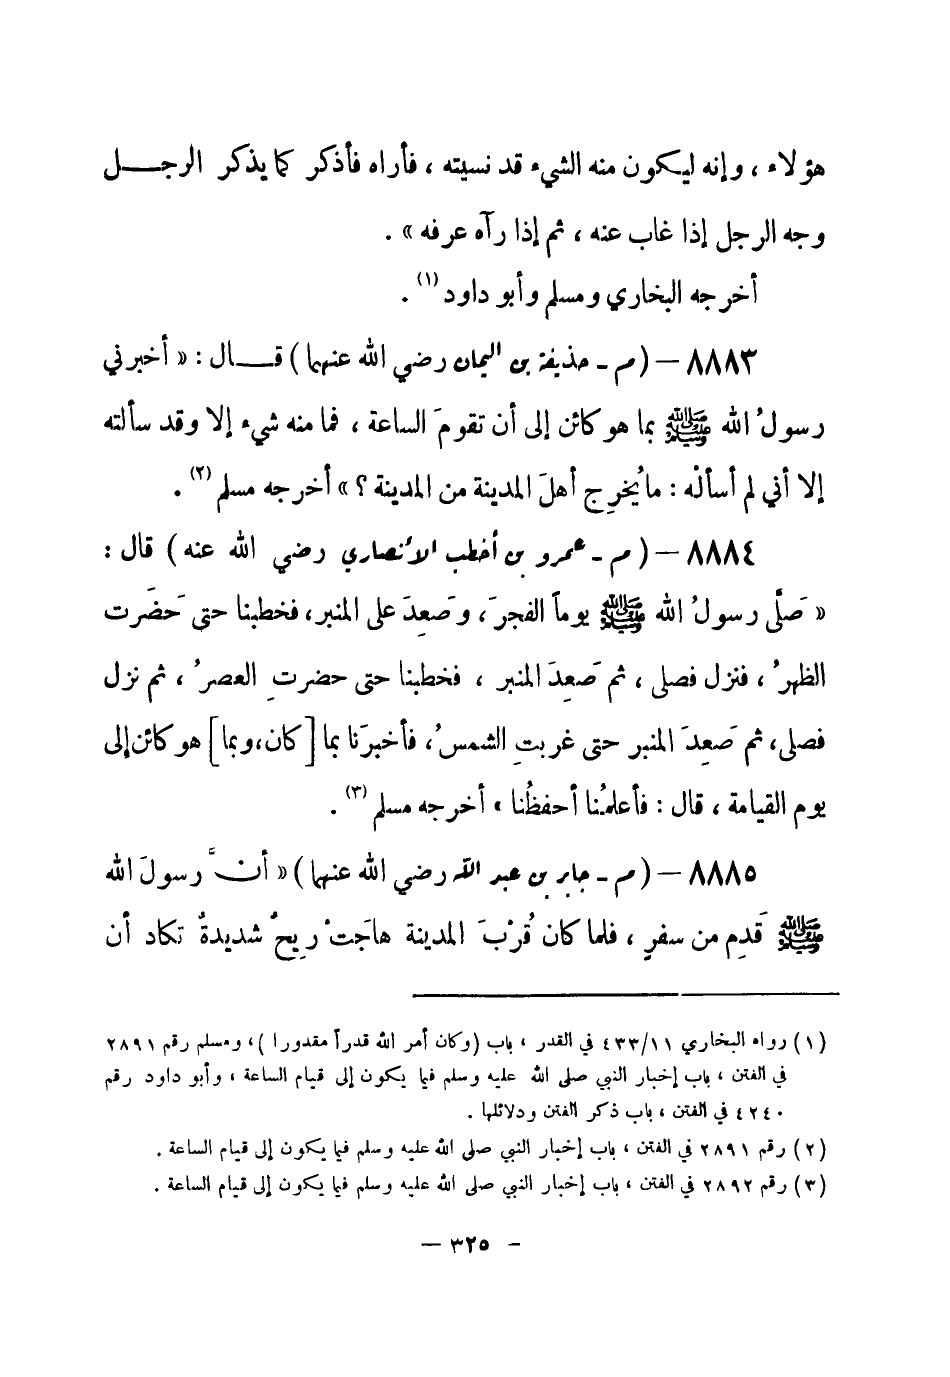 هؤلاء ، وإنه ليكون منه الشيء قد نسيته ، فأراه فأذكر كما يذكر الرجـــل
وجه الرجل إذا غاب عنه ، ثم إذا رآه عرفه » .
أخرجه البخاري ومسلم وأبو داود (١) .
٨٨٨٣ – ( م - حذيفة بن اليمان رضي الله عنهما ) قـــال : « أخبرني
رسولُ الله ﷺ بما هو كائن إلى أن تقومَ الساعة ، فما منه شيء إلا وقد سألته
إلا أني لم أسألْه : ما يُخرِج أهلَ المدينة من المدينة ؟ » أخرجه مسلم (٢) .
٨٨٨٤ – ( م - عمرو بن أخطب الأنصاري رضي الله عنه ) قال :
« صَلَّى رسولُ الله ﷺ يوماً الفجرَ ، وصَعِدَ على المنبر ، فخطبنا حتى حَضَرت
الظهرُ ، فنزل فصلى ، ثم صَعِدَ المنبر ، فخطبنا حتى حضرتِ العصرُ ، ثم نزل
فصلى ، ثم صَعِدَ المنبر حتى غربتِ الشمسُ ، فأخبرَنا بما [ كان ، وبما ] هو كائن إلى
يوم القيامة ، قال : فأعلمُنا أحفظُنا » أخرجه مسلم (٣) .
٨٨٨٥ – ( م - جابر بن عبد الله رضي الله عنهما ) « أنَّ رسولَ الله
ﷺ قَدِم من سفرٍ ، فلما كان قُرْبَ المدينة هاجَتْ رِيحٌ شديدةٌ تكاد أن
(١) رواه البخاري ٤٣٣/١١ في القدر ، باب ( وكان أمر الله قدراً مقدورا ) ، ومسلم رقم ٢٨٩١
في الفتن ، باب إخبار النبي صلى الله عليه وسلم فيما يكون إلى قيام الساعة ، وأبو داود رقم
٤٢٤٠ في الفتن ، باب ذكر الفتن ودلائلها .
(٢) رقم ٢٨٩١ في الفتن ، باب إخبار النبي صلى الله عليه وسلم فيما يكون إلى قيام الساعة .
(٣) رقم ٢٨٩٢ في الفتن ، باب إخبار النبي صلى الله عليه وسلم فيما يكون إلى قيام الساعة .
- ٣٢٥ —